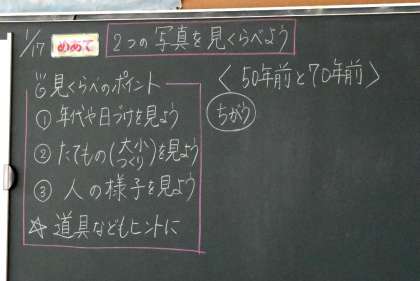 1/17 めあて 2つの写真を見くらべよう
見くらべのポイント
① 年代や日づけを見よう
② たてもの(大小つくり)を見よう
③ 人の様子を見よう
☆ 道具などもヒントに
〈50年前と70年前〉
ちがう